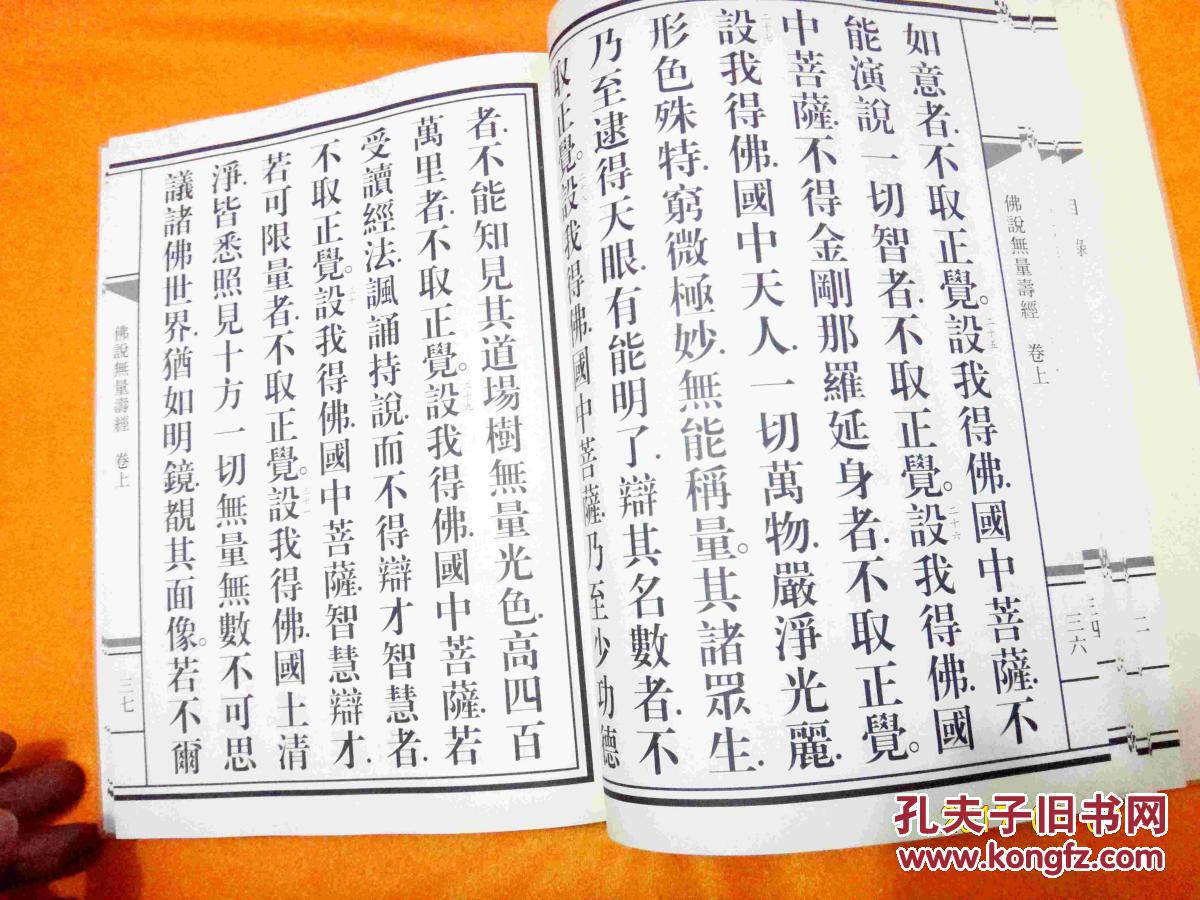 目錄
佛說無量壽經 卷上
三六
如意者.不取正覺。二十五設我得佛.國中菩薩.不
能演說一切智者.不取正覺。二十六設我得佛.國
中菩薩.不得金剛那羅延身者.不取正覺。
二十七設我得佛.國中天人.一切萬物.嚴淨光麗.
形色殊特.窮微極妙.無能稱量。其諸眾生.
乃至逮得天眼.有能明了.辯其名數者.不
取正覺。設我得佛.國中菩薩.乃至少功德
者.不能知見其道場樹無量光色.高四百
萬里者.不取正覺。二十九設我得佛.國中菩薩.若
受讀經法.諷誦持說.而不得辯才智慧者.
不取正覺。三十設我得佛.國中菩薩.智慧辯才.
若可限量者.不取正覺。三十一設我得佛.國土清
淨.皆悉照見十方一切無量無數不可思
議諸佛世界.猶如明鏡.覩其面像。若不爾
佛說無量壽經 卷上
三七
孔夫子旧书网
www.kongfz.com